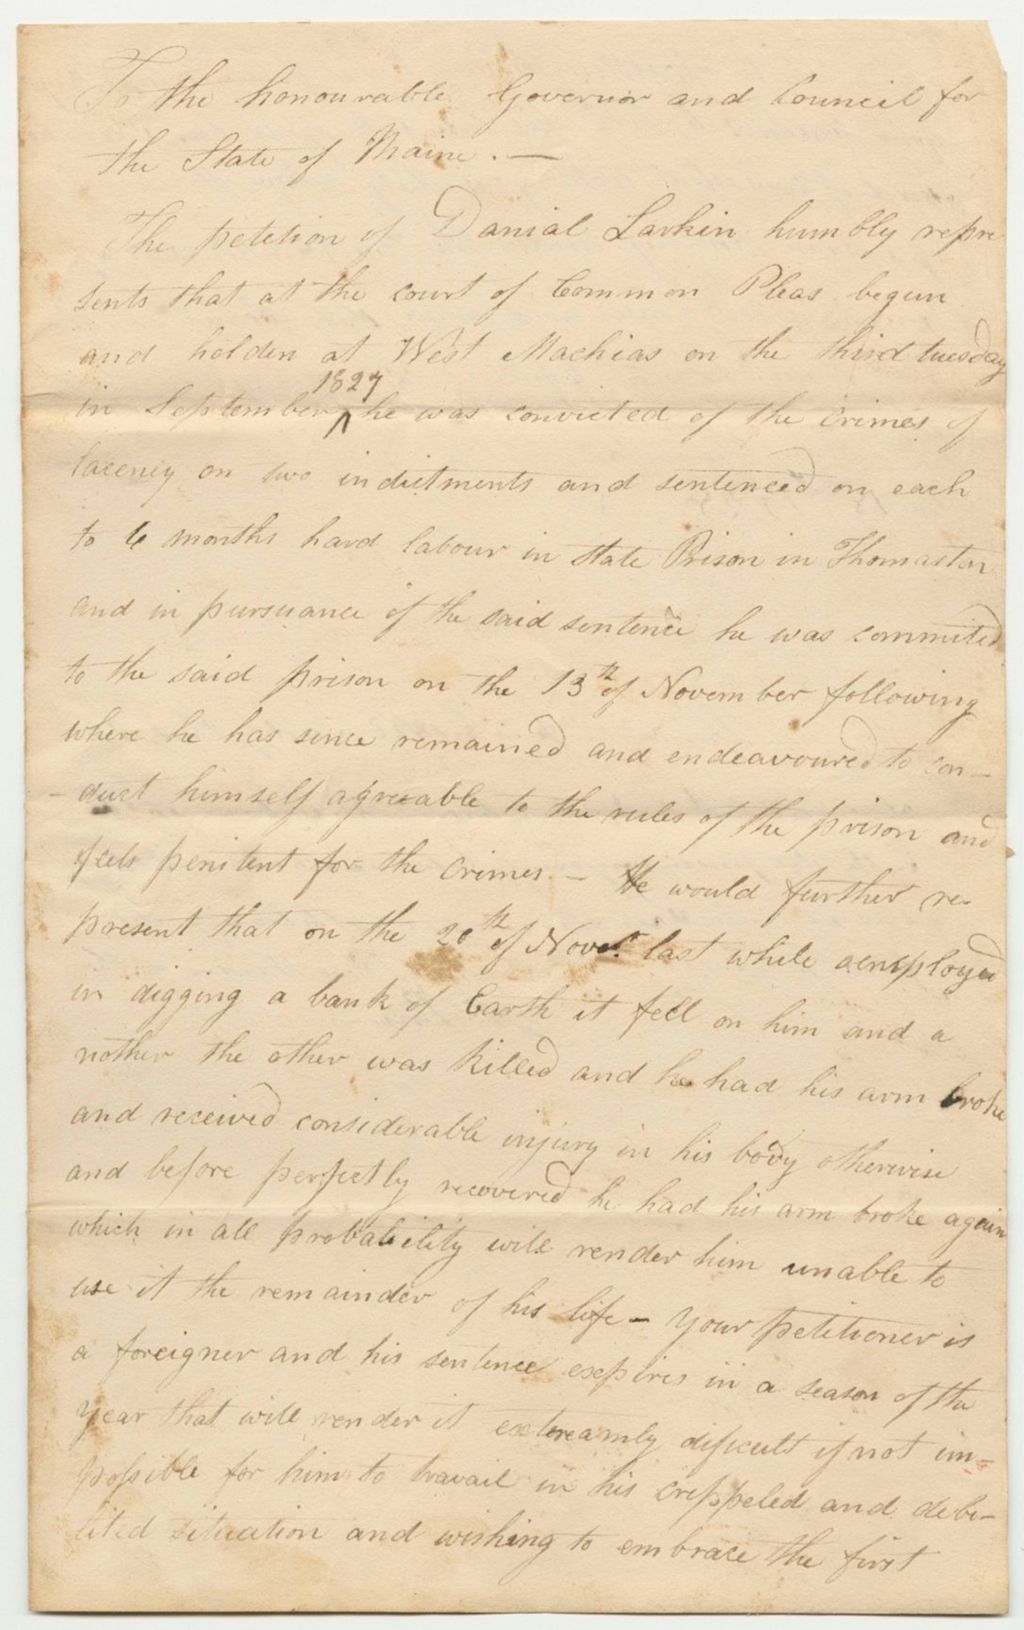 To the honourable Governor and Council for
the State of Maine. —
The petition of Danial Larkin humbly repre
sents that at the court of Common Pleas begun
and holden at West Machias on the third tuesday
1827
in September ^ he was convicted of the crimes of
laceney on two indictments and sentenced on each
to 6 months hard labour in State Prison in Thomaston
and in pursuance of the said sentence he was commited
to the said prison on the 13th of November following
where he has since remained and endeavoured to con-
-duct himself agreeable to the rules of the prison and
feels penitent for the crimes. — He would further re-
present that on the 20th of Novr. last while aemployed
in digging a bank of Earth it fell on him and a
nother the other was killed and he had his arm broke
and received considerable injury in his body otherwise
and before perfectly recovered he had his arm broke again
which in all probability will render him unable to
use it the remainder of his life - Your petitioner is
a foreigner and his sentence expires in a season of the
year that will render it extreamly dificult if not im-
possible for him to travail in his crippeled and debi-
lited situation and wishing to embrace the first